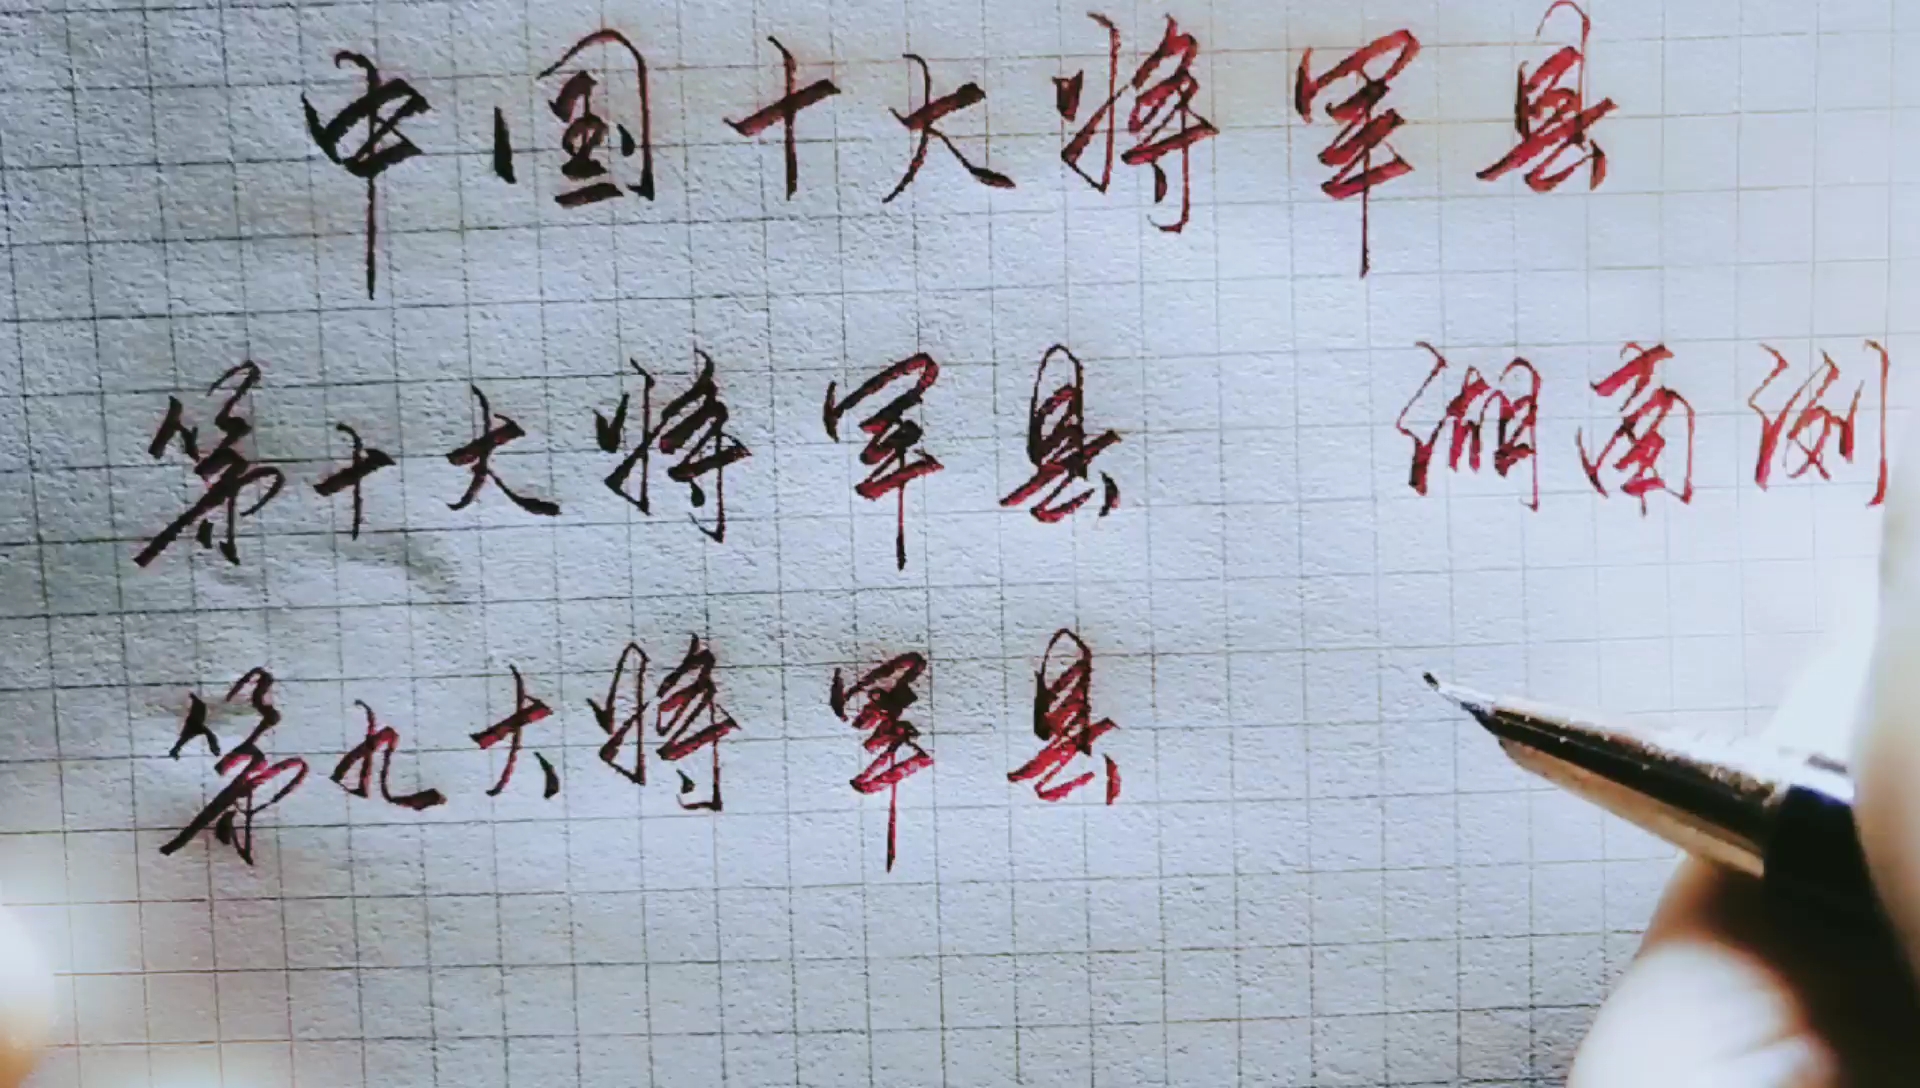 中国十大将军县
第十大将军县 湖南浏
第九大将军县